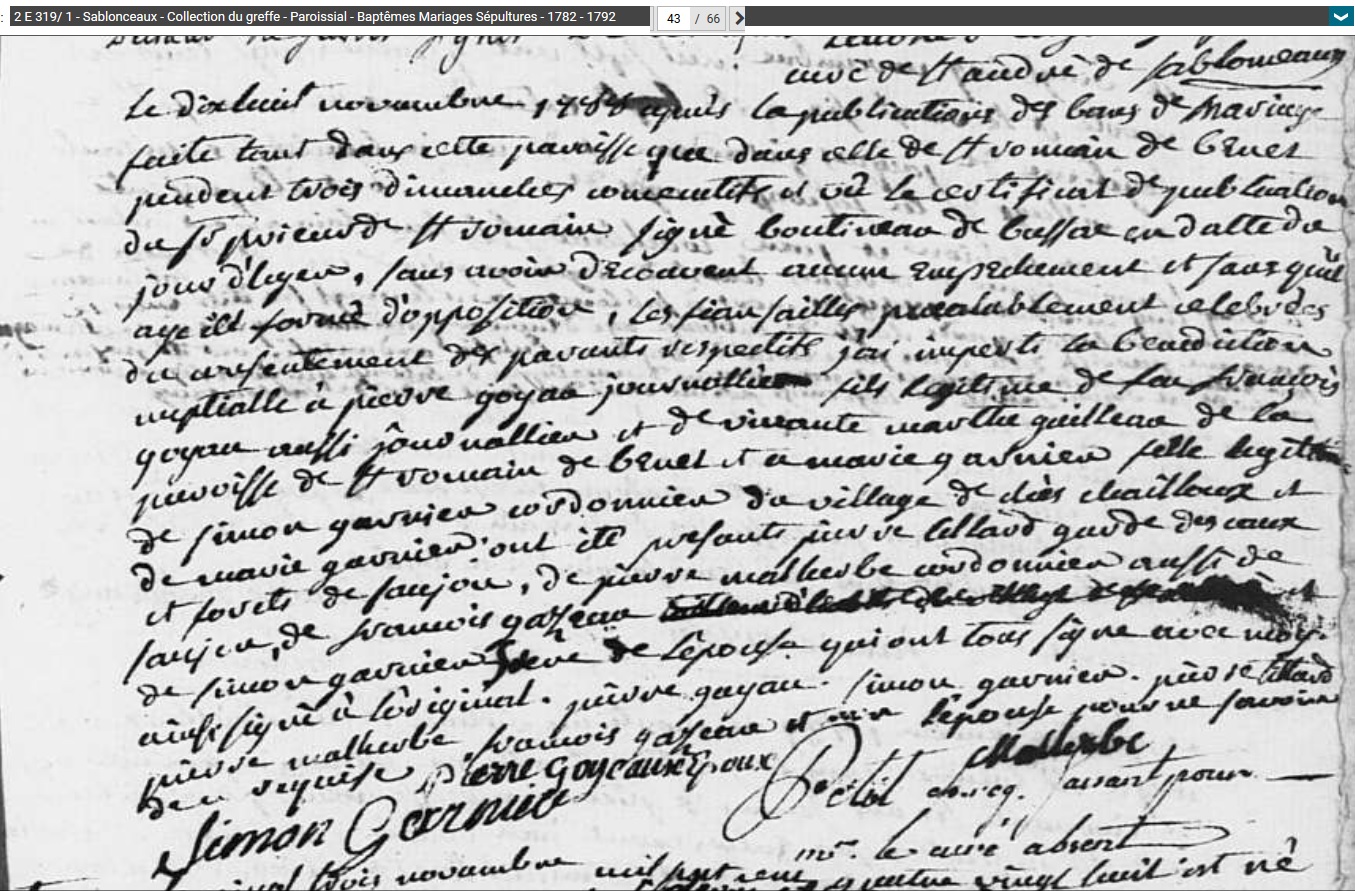 2 E 319/ 1 - Sablonceaux - Collection du greffe - Paroissial - Baptêmes Mariages Sépultures - 1782 - 1792
43 / 66
curé de St andré de Sablonceaux
Le dixhuit novembre après la publications des bans de Mariage
faite tant dans cette paroisse que dans celle de St romain de benet
pendent trois dimanches consecutifs et vû le certificat de publication
du Sr prieur de St romain signé boutineau de bussac en datte du
jour d'hyer, sans avoir découvert aucun empechement et sans quil
aye été formé d'opposition, les fiansailles prealablement celebrées
du consentement des parants respectifs j'ai imparti la benediction
nuptialle à pierre goyau journallier fils legitime de feu francois
goyau aussi journallier et de vivante marthe guilleau de la
paroisse de St romain de benet et à marie garnier fille
de simon garnier cordonnier du village de chés chailloux et
de marie garnier ont été presants pierre tillard garde des eaux
et forêts de saujon, de pierre malherbe cordonnier aussi de
saujon, de francois gazeau et
de simon garnier frere de l'épouse qui ont tous signé avec moy
ainsi signé à l'original. pierre goyau. simon garnier. pierre tillard
pierre malherbe francois gazeau et l'épouse pour ne savoir
de ce requise Pierre Goyeaux Epoux Malherbe
Simon Garnier Petit faisant pour
mr. le curé absent
trois novembre mil sept cent quatre vingt huit est né